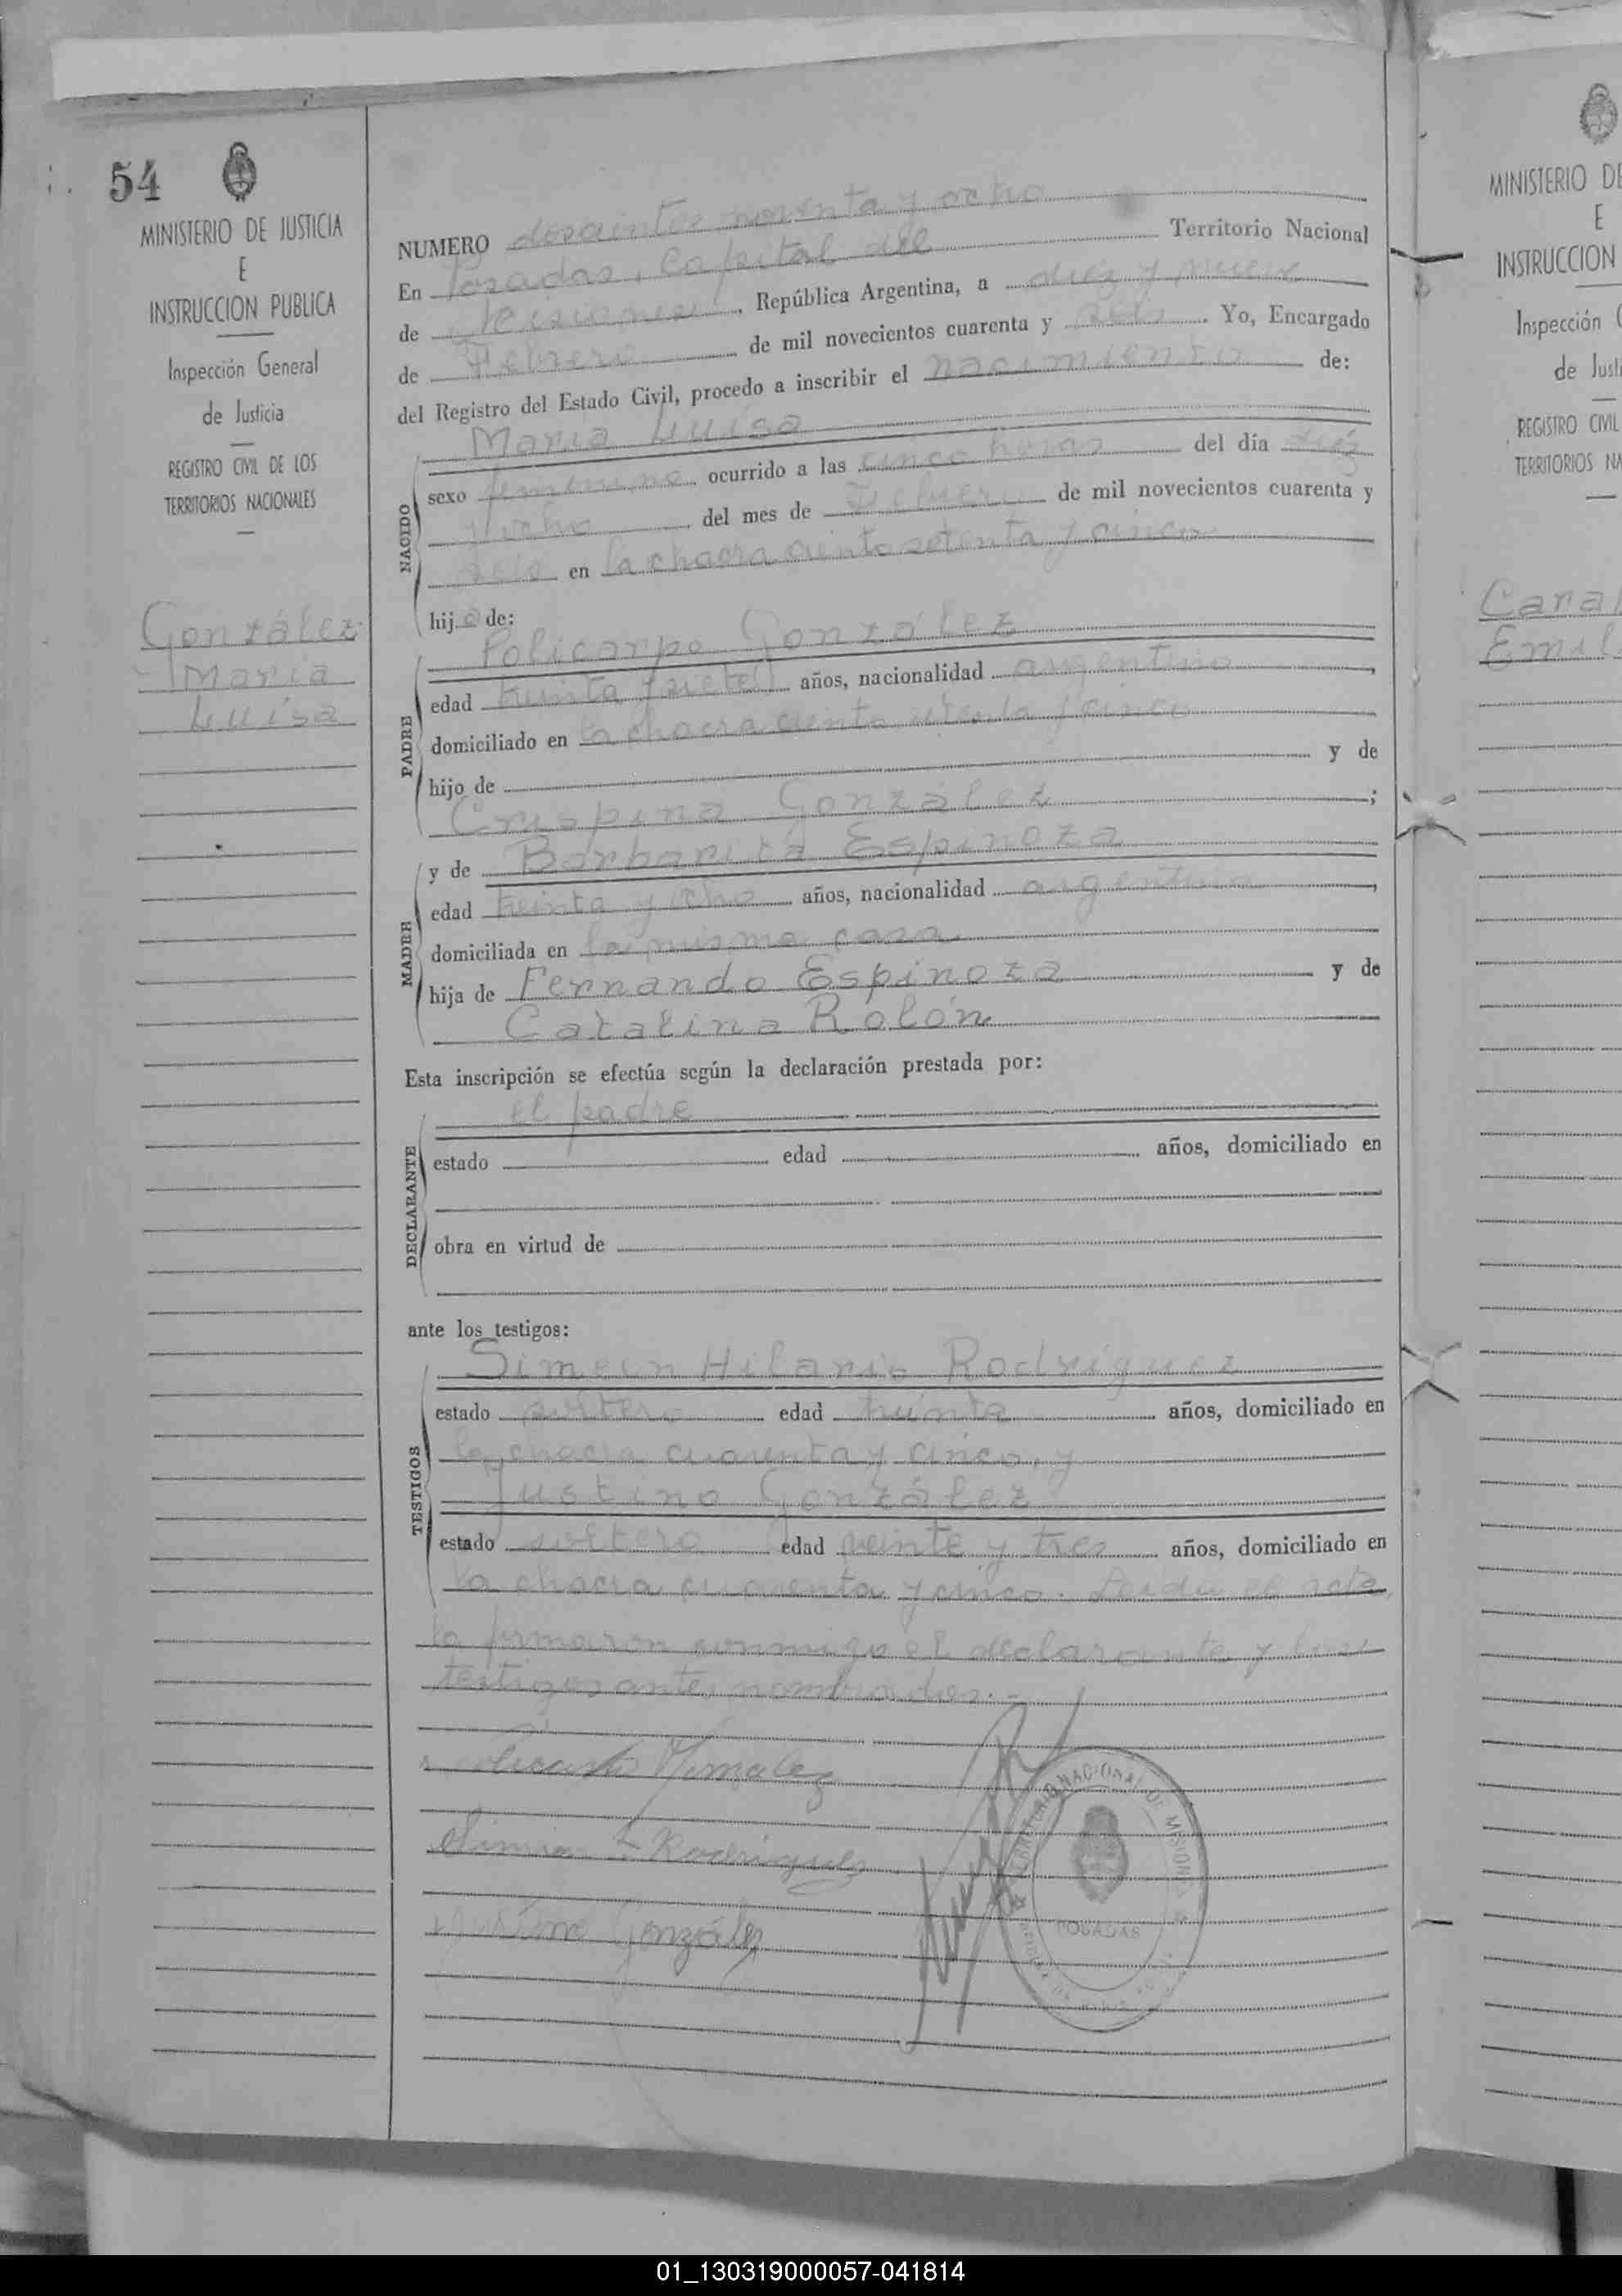 54
MINISTERIO DE JUSTICIA
E
INSTRUCCION PUBLICA
Inspección General
de Justicia
REGISTRO CIVIL DE LOS
TERRITORIOS NACIONALES
González
María
Luisa
NUMERO doscientos noventa y ocho
En Posadas, Capital del Territorio Nacional
de Misiones, República Argentina, a diez y nueve
de Febrero de mil novecientos cuarenta y seis. Yo, Encargado
del Registro del Estado Civil, procedo a inscribir el nacimiento de:
NACIDO
María Luisa
sexo femenino ocurrido a las cinco horas del día diez
y ocho del mes de Febrero de mil novecientos cuarenta y
seis en la chacra ciento setenta y cinco
hija de:
PADRE
Policarpo González
edad treinta y siete años, nacionalidad argentino,
domiciliado en la chacra ciento setenta y cinco
hijo de y de
Crispina González;
MADRE
y de Barbarita Espinoza
edad treinta y ocho años, nacionalidad argentina,
domiciliada en la misma casa
hija de Fernando Espinoza y de
Catalina Rolón
Esta inscripción se efectúa según la declaración prestada por:
DECLARANTE
el padre
estado edad años, domiciliado en
obra en virtud de
ante los testigos:
TESTIGOS
Simeón Hilario Rodríguez
estado soltero edad treinta años, domiciliado en
la chacra cuarenta y cinco, y
Justino González
estado soltero edad veinte y tres años, domiciliado en
la chacra cuarenta y cinco. Leída el acta
la firmaron conmigo el declarante y los
testigos antes nombrados.-
Policarpo González
Simeon H Rodríguez
Justino González
TERRITORIO NACIONAL DE MISIONES
POSADAS
MINISTERIO DE
E
INSTRUCCION
Inspección G
de Justi
REGISTRO CIVIL
TERRITORIOS NA
Emil
01_130319000057-041814